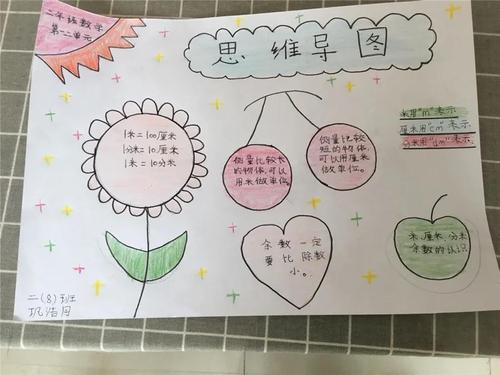 二年级数学
第一二单元
思维导图
1米=100厘米
1分米=10厘米
1米=10分米
测量比较长
的物体,可以
用米做单位。
测量比较
短的物体,
可以用厘米
做单位。
米用"m"表示
厘米用"cm"表示
分米用"dm"表示
余数一定
要比除数
小。
米、厘米、分米
余数的认识
二(8)班